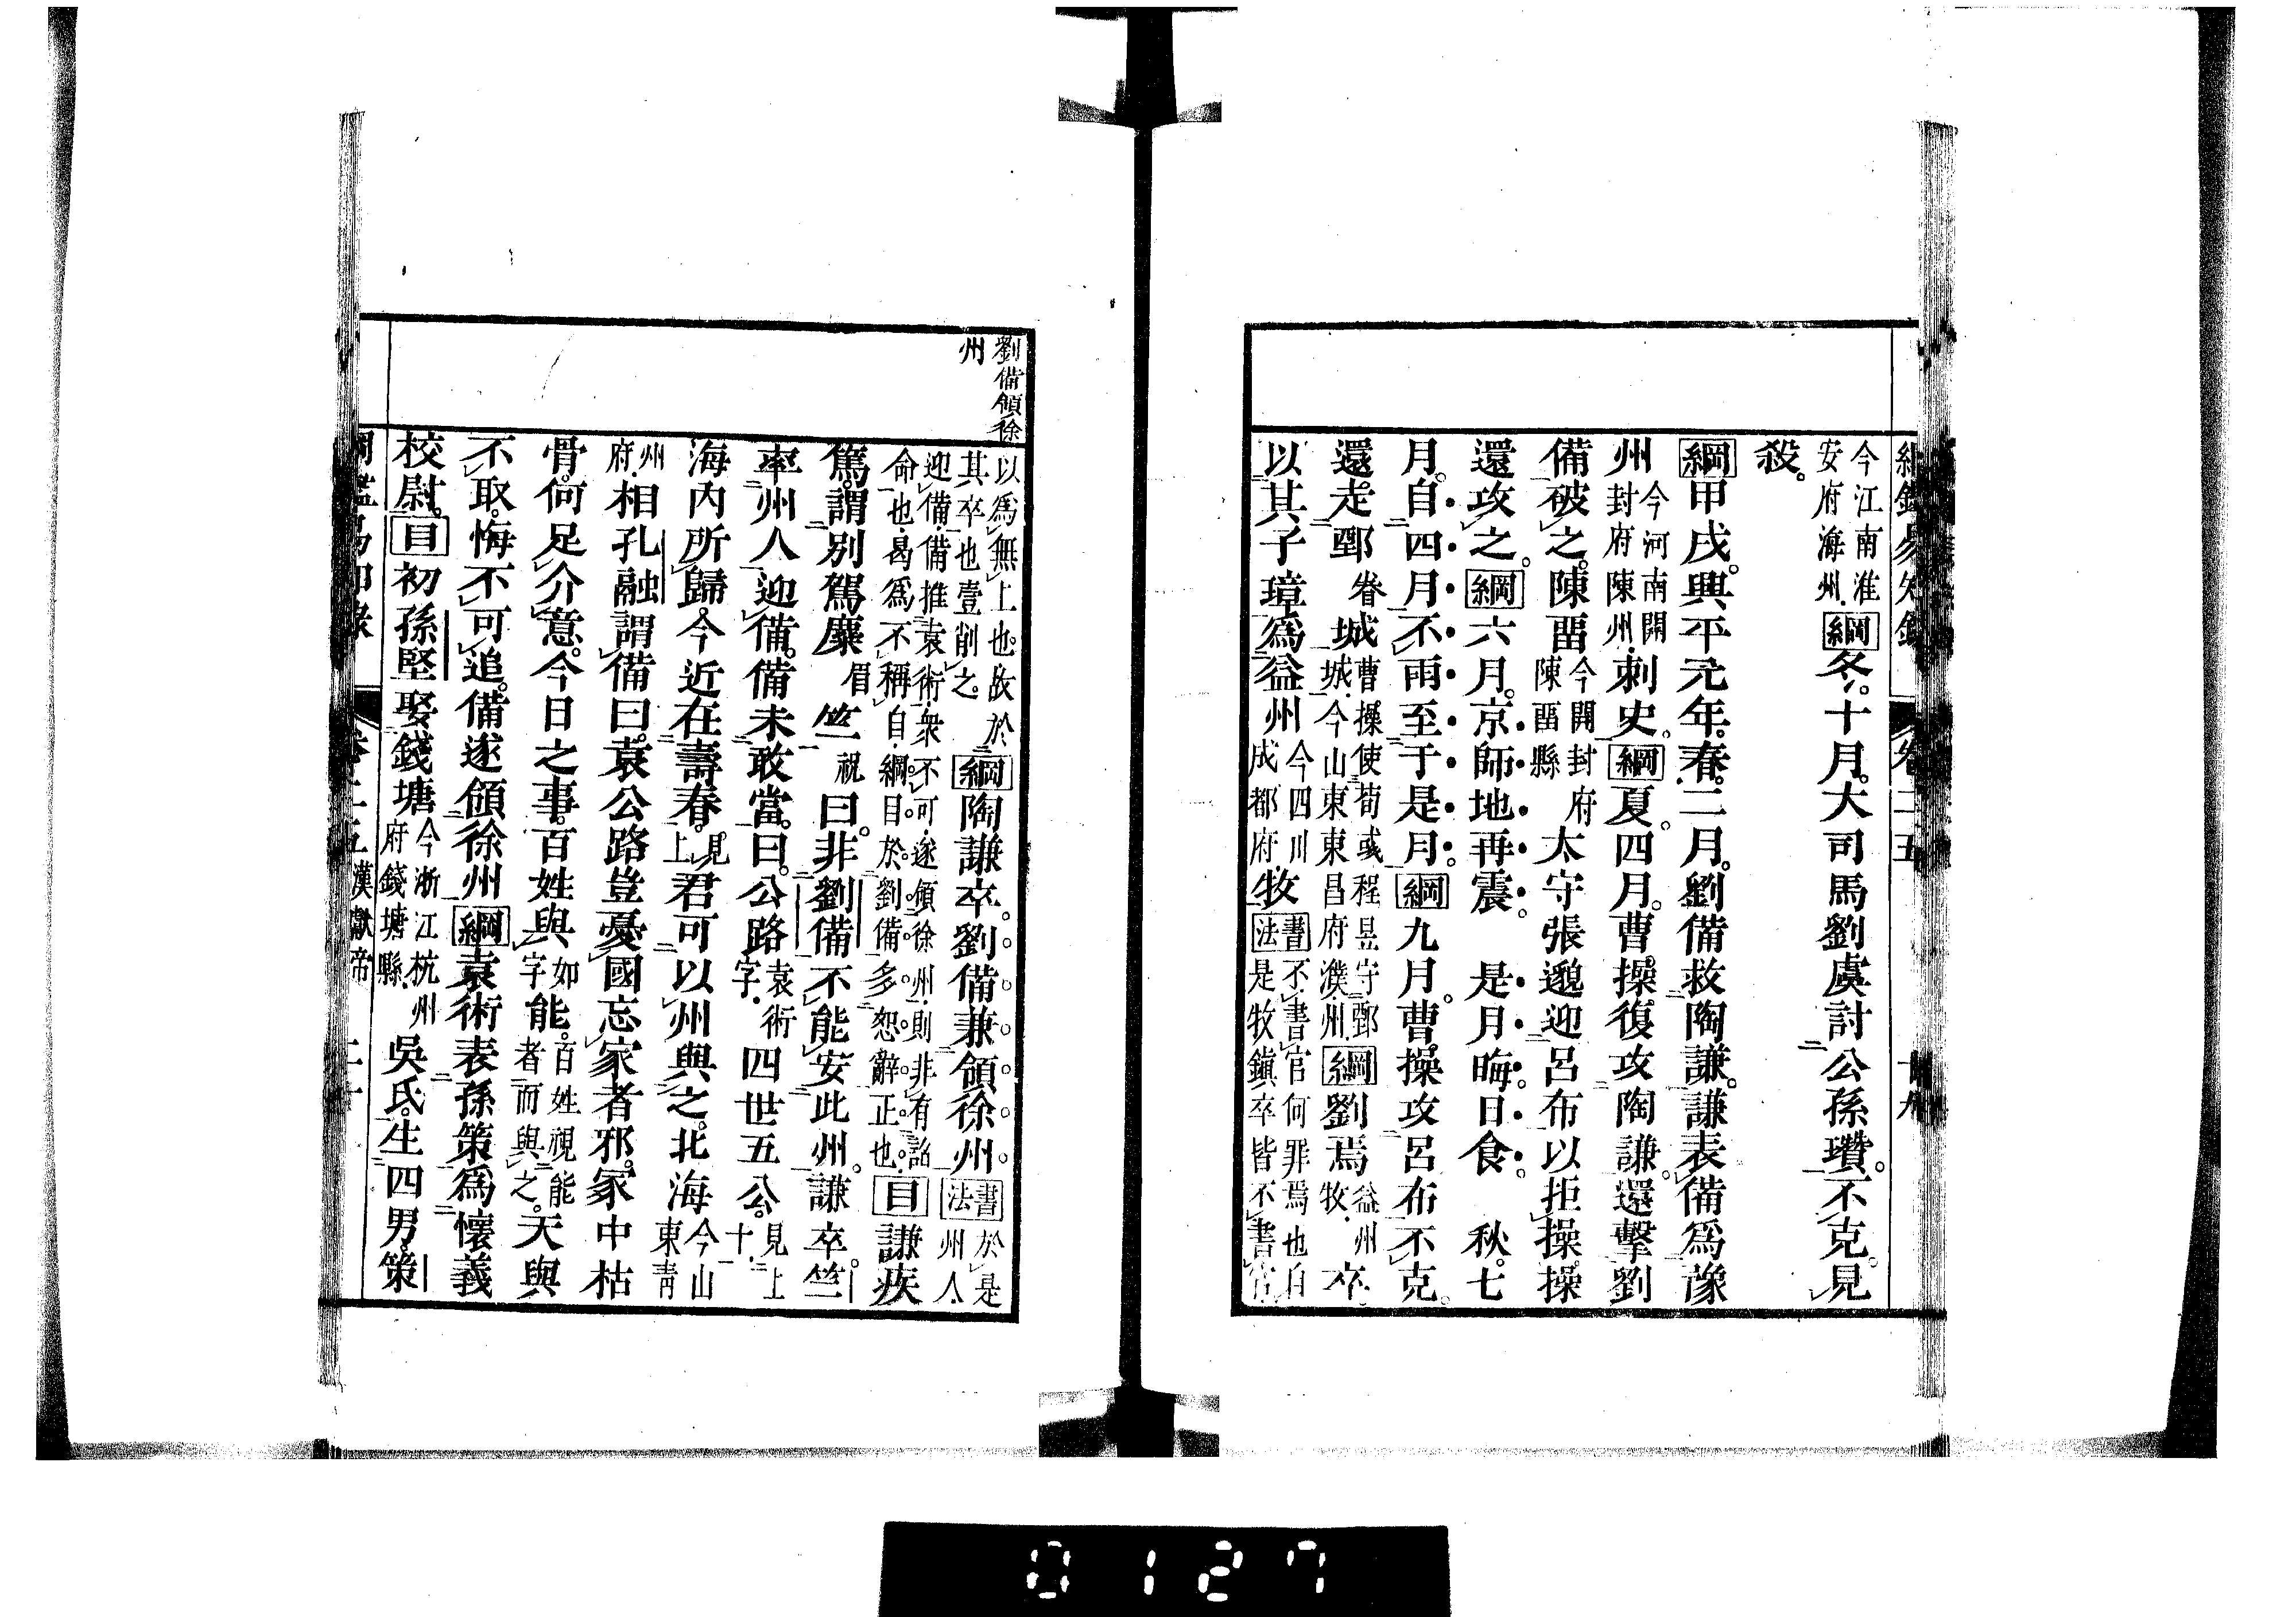 今江南淮安府海州綱冬十月大司馬劉虞討公孫瓚不克見
殺
綱甲戌興平元年春二月劉備救陶謙謙表備為豫
州今河南開封府陳州刺史綱夏四月曹操復攻陶謙還擊劉
備破之陳畱今開封府陳畱縣太守張邈迎呂布以拒操操
還攻之綱六月京師地再震 是月晦日食 秋七
月自四月不雨至于是月綱九月曹操攻呂布不克
還走鄄眷城曹操使荀彧程昱守鄄城今山東東昌府濮州綱劉焉益州牧卒
以其子璋為益州今四川成都府牧書法不書官何罪焉也自是牧鎮卒皆不書官
劉備領徐
州
以為無上也故於其卒也壹削之綱陶謙卒劉備兼領徐州書法於是州人
迎備備推袁術衆不可遂領徐州則非有詔命也曷為不稱自綱目於劉備多恕辭正也目謙疾
篤謂別駕麋眉竺祝曰非劉備不能安此州謙卒竺
率州人迎備備未敢當曰公路袁術字四世五公見上十
海內所歸今近在壽春見上君可以州與之北海今山東靑
州府相孔融謂備曰袁公路豈憂國忘家者邪冢中枯
骨何足介意今日之事百姓與如字能百姓視能者而與之天與
不取悔不可追備遂領徐州綱袁術表孫策為懷義
校尉目初孫堅娶錢塘今浙江杭州府錢塘縣吳氏生四男策
漢獻帝
0127